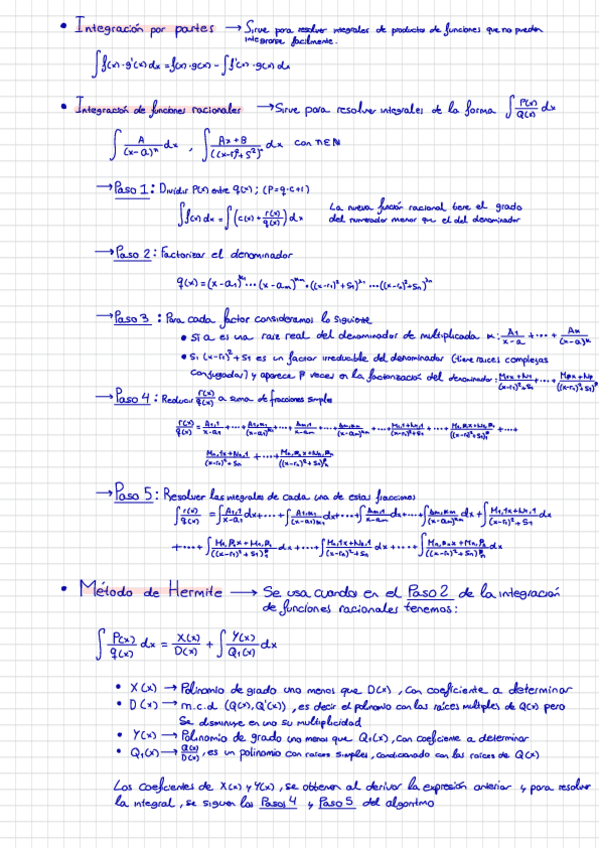 • Integración por partes → Sirve para resolver integrales de productos de funciones que no pueden
integrarse facilmente.
∫f(x)·g'(x)dx = f(x)·g(x) - ∫f'(x)·g(x)dx
• Integración de funciones racionales → Sirve para resolver integrales de la forma ∫P(x)/Q(x) dx
∫A/(x-a)ⁿ dx , ∫(Ax+B)/((x-r)²+s²)ⁿ dx con n∈N
→ Paso 1: Dividir P(x) entre q(x); (P=q·c+r)
∫f(x)dx = ∫(c(x)+r(x)/q(x))dx La nueva función racional tiene el grado
del numerador menor que el del denominador
→ Paso 2: Factorizar el denominador
→ Paso 3: Para cada factor consideramos lo siguiente
• Si a es una raiz real del denominador de multiplicada α: A₁/(x-a)+···+Aα/(x-a)^α
• Si (x-r₁)²+s₁ es un factor irreducible del denominador (tiene raices complejas
conjugadas) y aparece p veces en la factorización del denominador:
→ Paso 4: Reducir r(x)/q(x) a suma de fracciones simples
→ Paso 5: Resolver las integrales de cada una de estas fracciones
• Método de Hermite → Se usa cuandos en el Paso 2 de la integración
de funciones racionales tenemos:
∫P(x)/q(x) dx = X(x)/D(x) + ∫Y(x)/Q₁(x) dx
• X(x) → Polinomio de grado uno menos que D(x), con coeficiente a determinar
• D(x) → m.c.d (Q(x),Q'(x)), es decir el polinomio con las raíces multiples de Q(x) pero
se disminuye en uno su multiplicidad
• Y(x) → Polinomio de grado uno menos que Q₁(x), con coeficiente a determinar
• Q₁(x) → Q(x)/D(x), es un polinomio con raices simples, condicionado con las raices de Q(x)
Los coeficientes de X(x) y Y(x), se obtienen al derivar la expresión anterior y para resolver
la integral, se siguen los Pasos 4 y Paso 5 del algoritmo